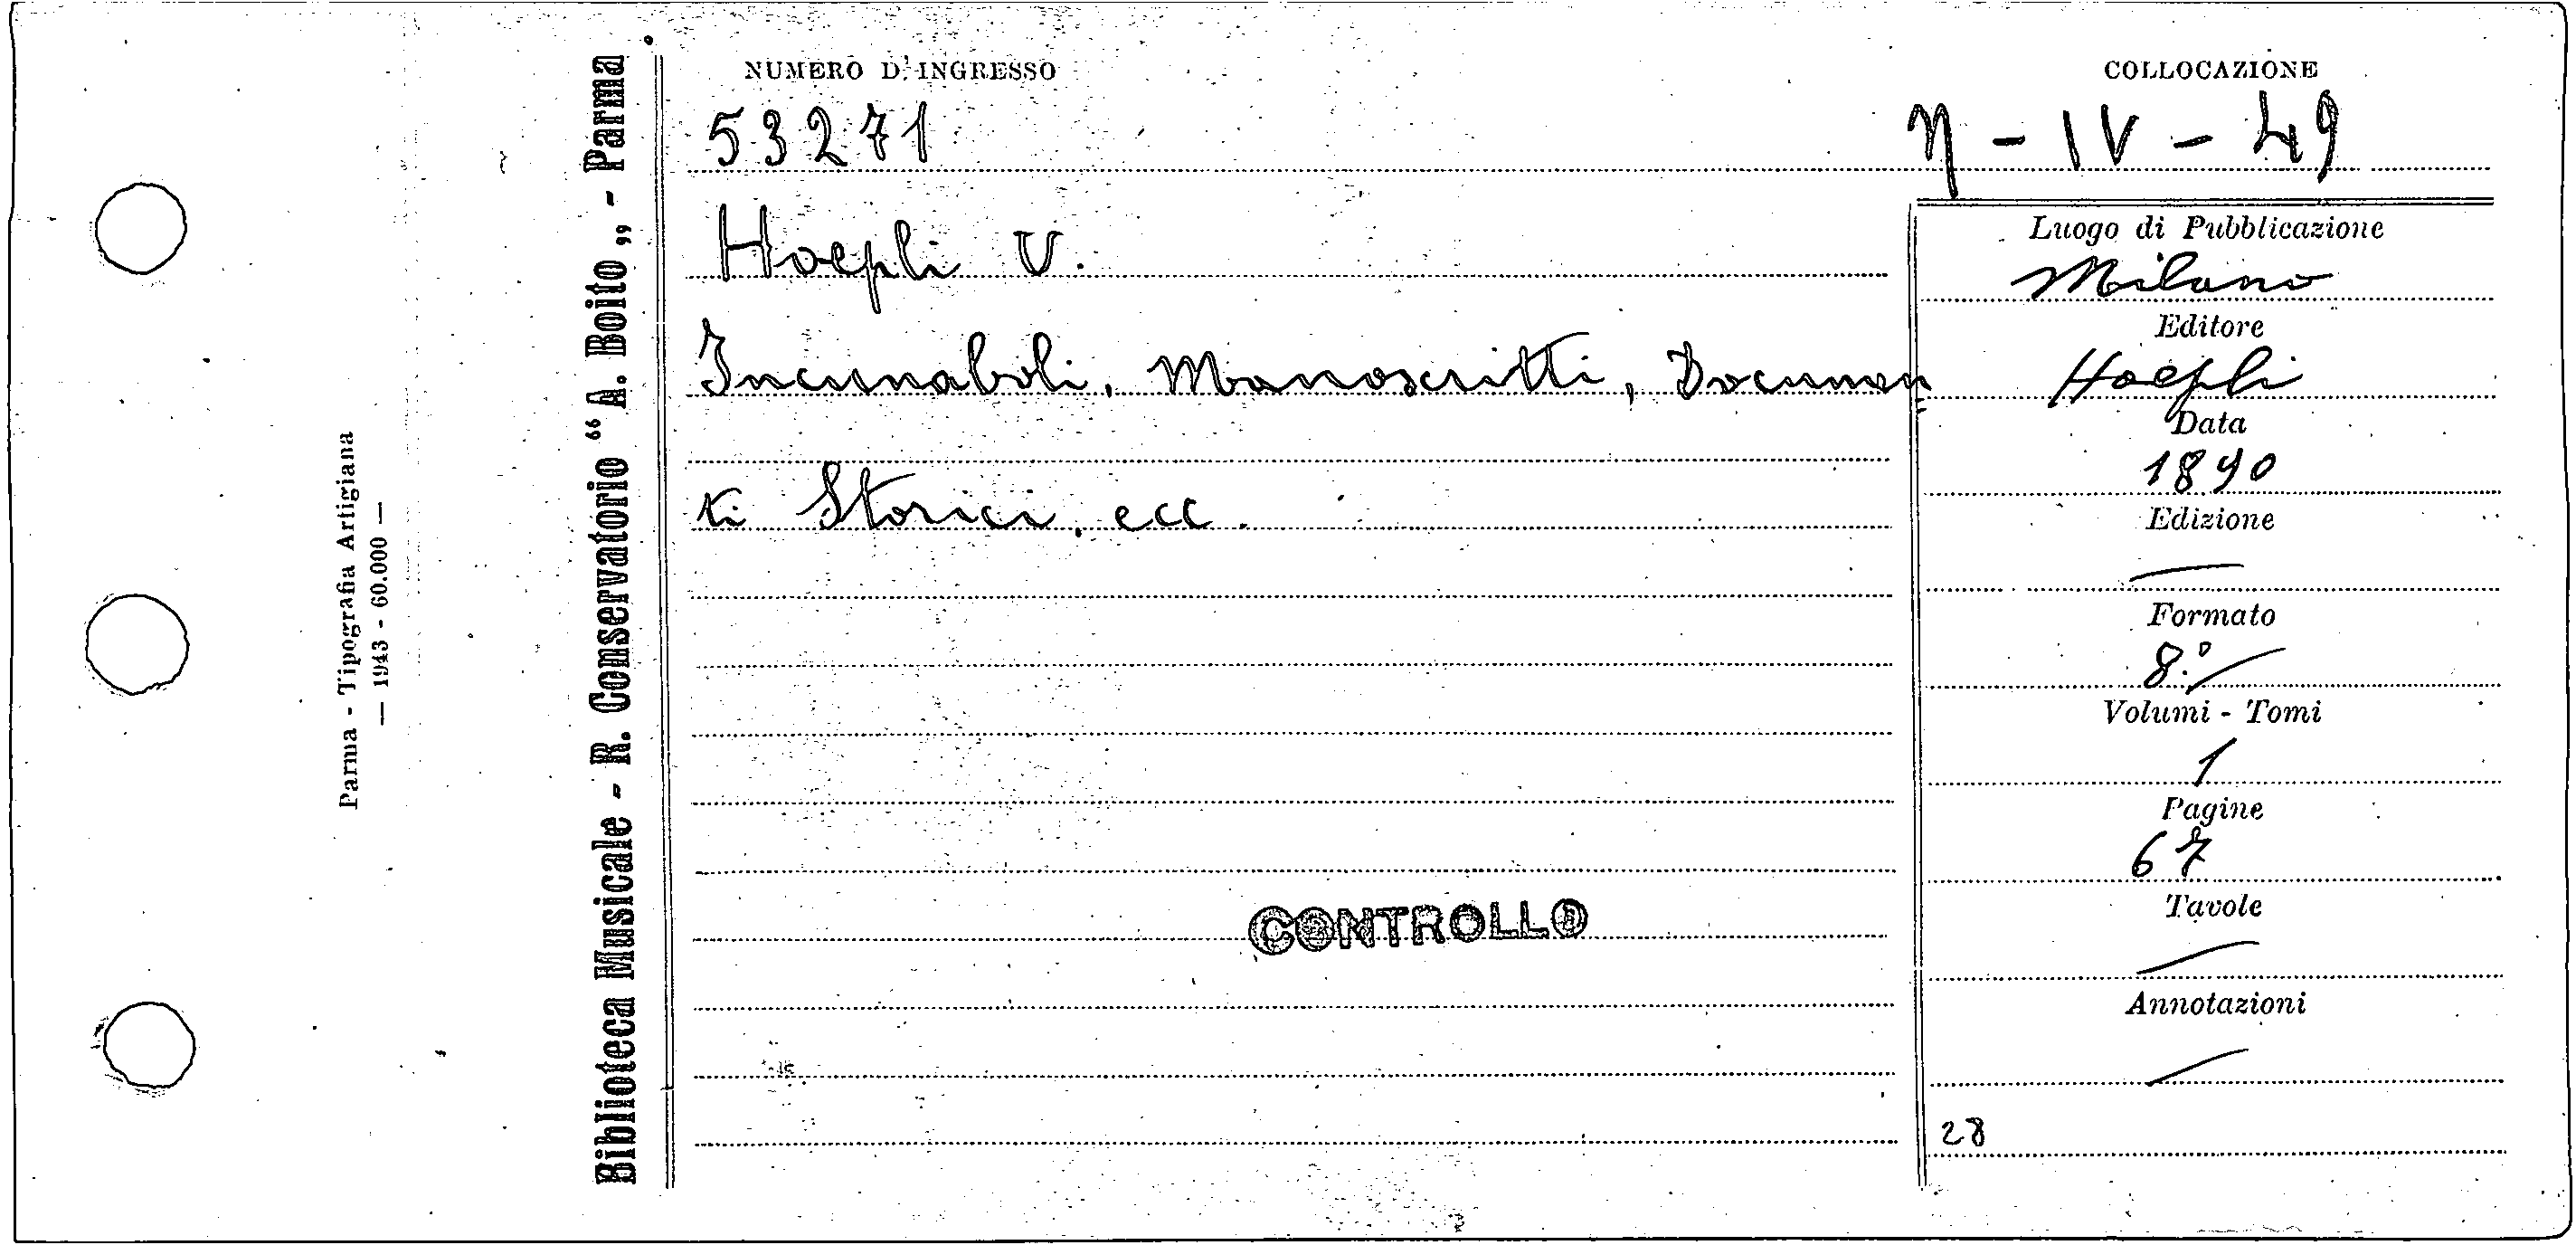 NUMERO D'INGRESSO
53271
COLLOCAZIONE
η - IV - 49
Hoepli U.
Incunaboli, Manoscritti, Documen
ti Storici, ecc.
CONTROLLO
Luogo di Pubblicazione
Milano
Editore
Hoepli
Data
1890
Edizione
Formato
8.º
Volumi - Tomi
1
Pagine
67
Tavole
Annotazioni
28
Biblioteca Musicale - R. Conservatorio “A. Boito„ - Parma
Parma - Tipografia Artigiana
— 1943 - 60.000 —